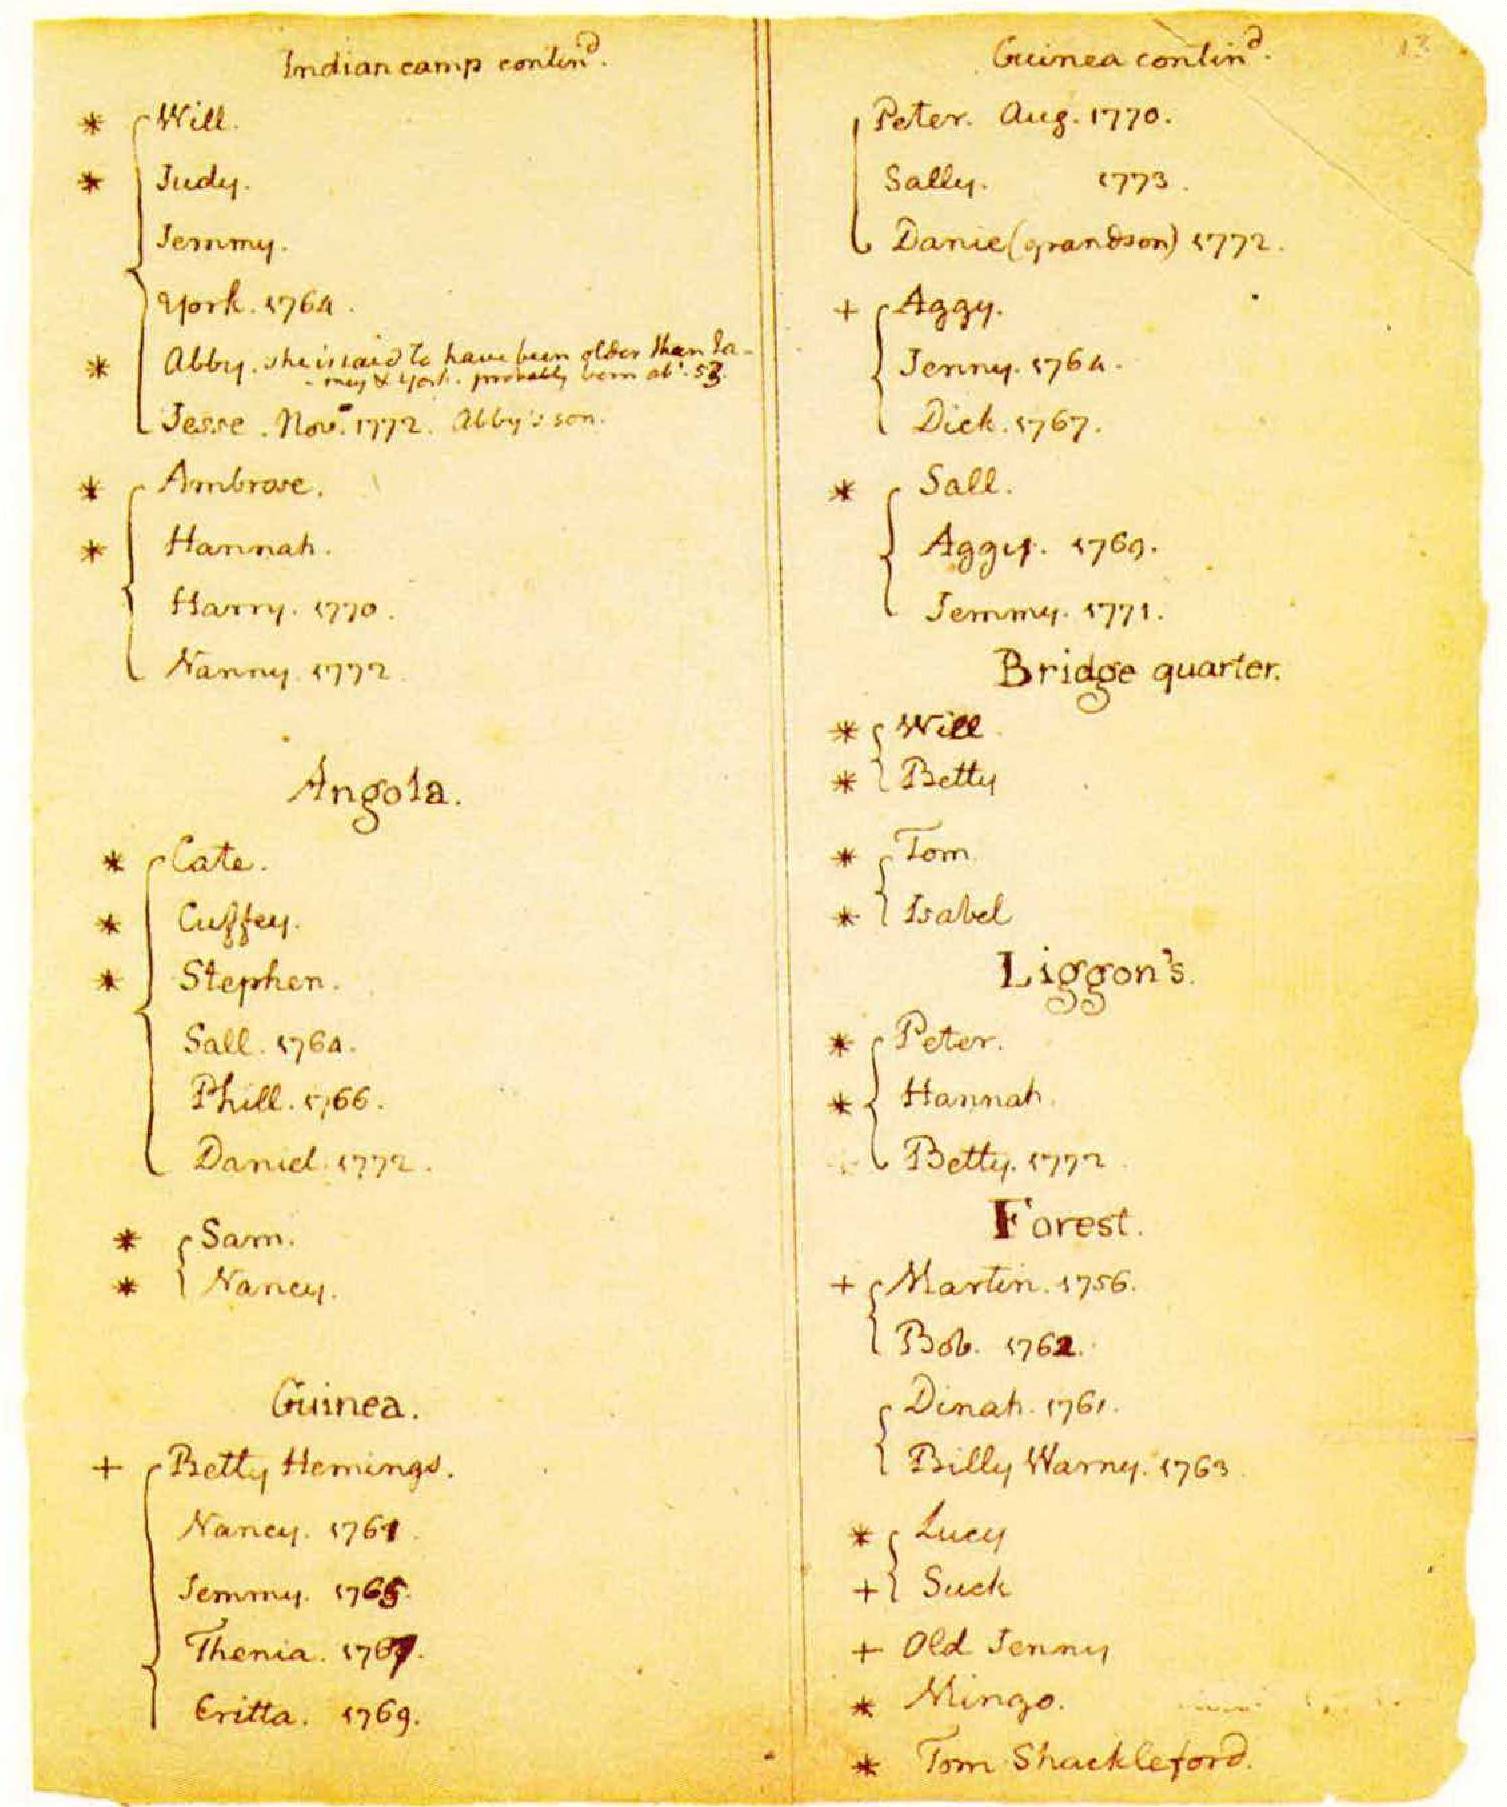 Indian camp contin^d.
* Will.
* Judy.
Jemmy.
York. 1764.
* Abby. she is said to have been older than Ja-
-mey & York. probably born ab^t. 53.
Jesse. Nov. 1772. Abby's son.
* Ambrose.
* Hannah.
Harry. 1770.
Nanny. 1772.
Angola.
* Cate.
* Cuffey.
* Stephen.
Sall. 1764.
Phill. 1766.
Daniel. 1772.
* Sam.
* Nancy.
Guinea.
+ Betty Hemings.
Nancy. 1761.
Jemmy. 1765.
Thenia. 1767.
Critta. 1769.
13
Guinea contin^d.
Peter. Aug. 1770.
Sally. 1773.
Danie (grandson) 1772.
+ Aggy.
Jenny. 1764.
Dick. 1767.
* Sall.
Aggy. 1769.
Jemmy. 1771.
Bridge quarter.
* Will
* Betty
* Tom
* Isabel
Liggon's.
* Peter.
* Hannah
Betty. 1772
Forest.
+ Martin. 1756.
Bob. 1762.
Dinah. 1761.
Billy Warny. 1763
* Lucy
+ Suck
+ Old Jenny
* Mingo.
* Tom Shackleford.